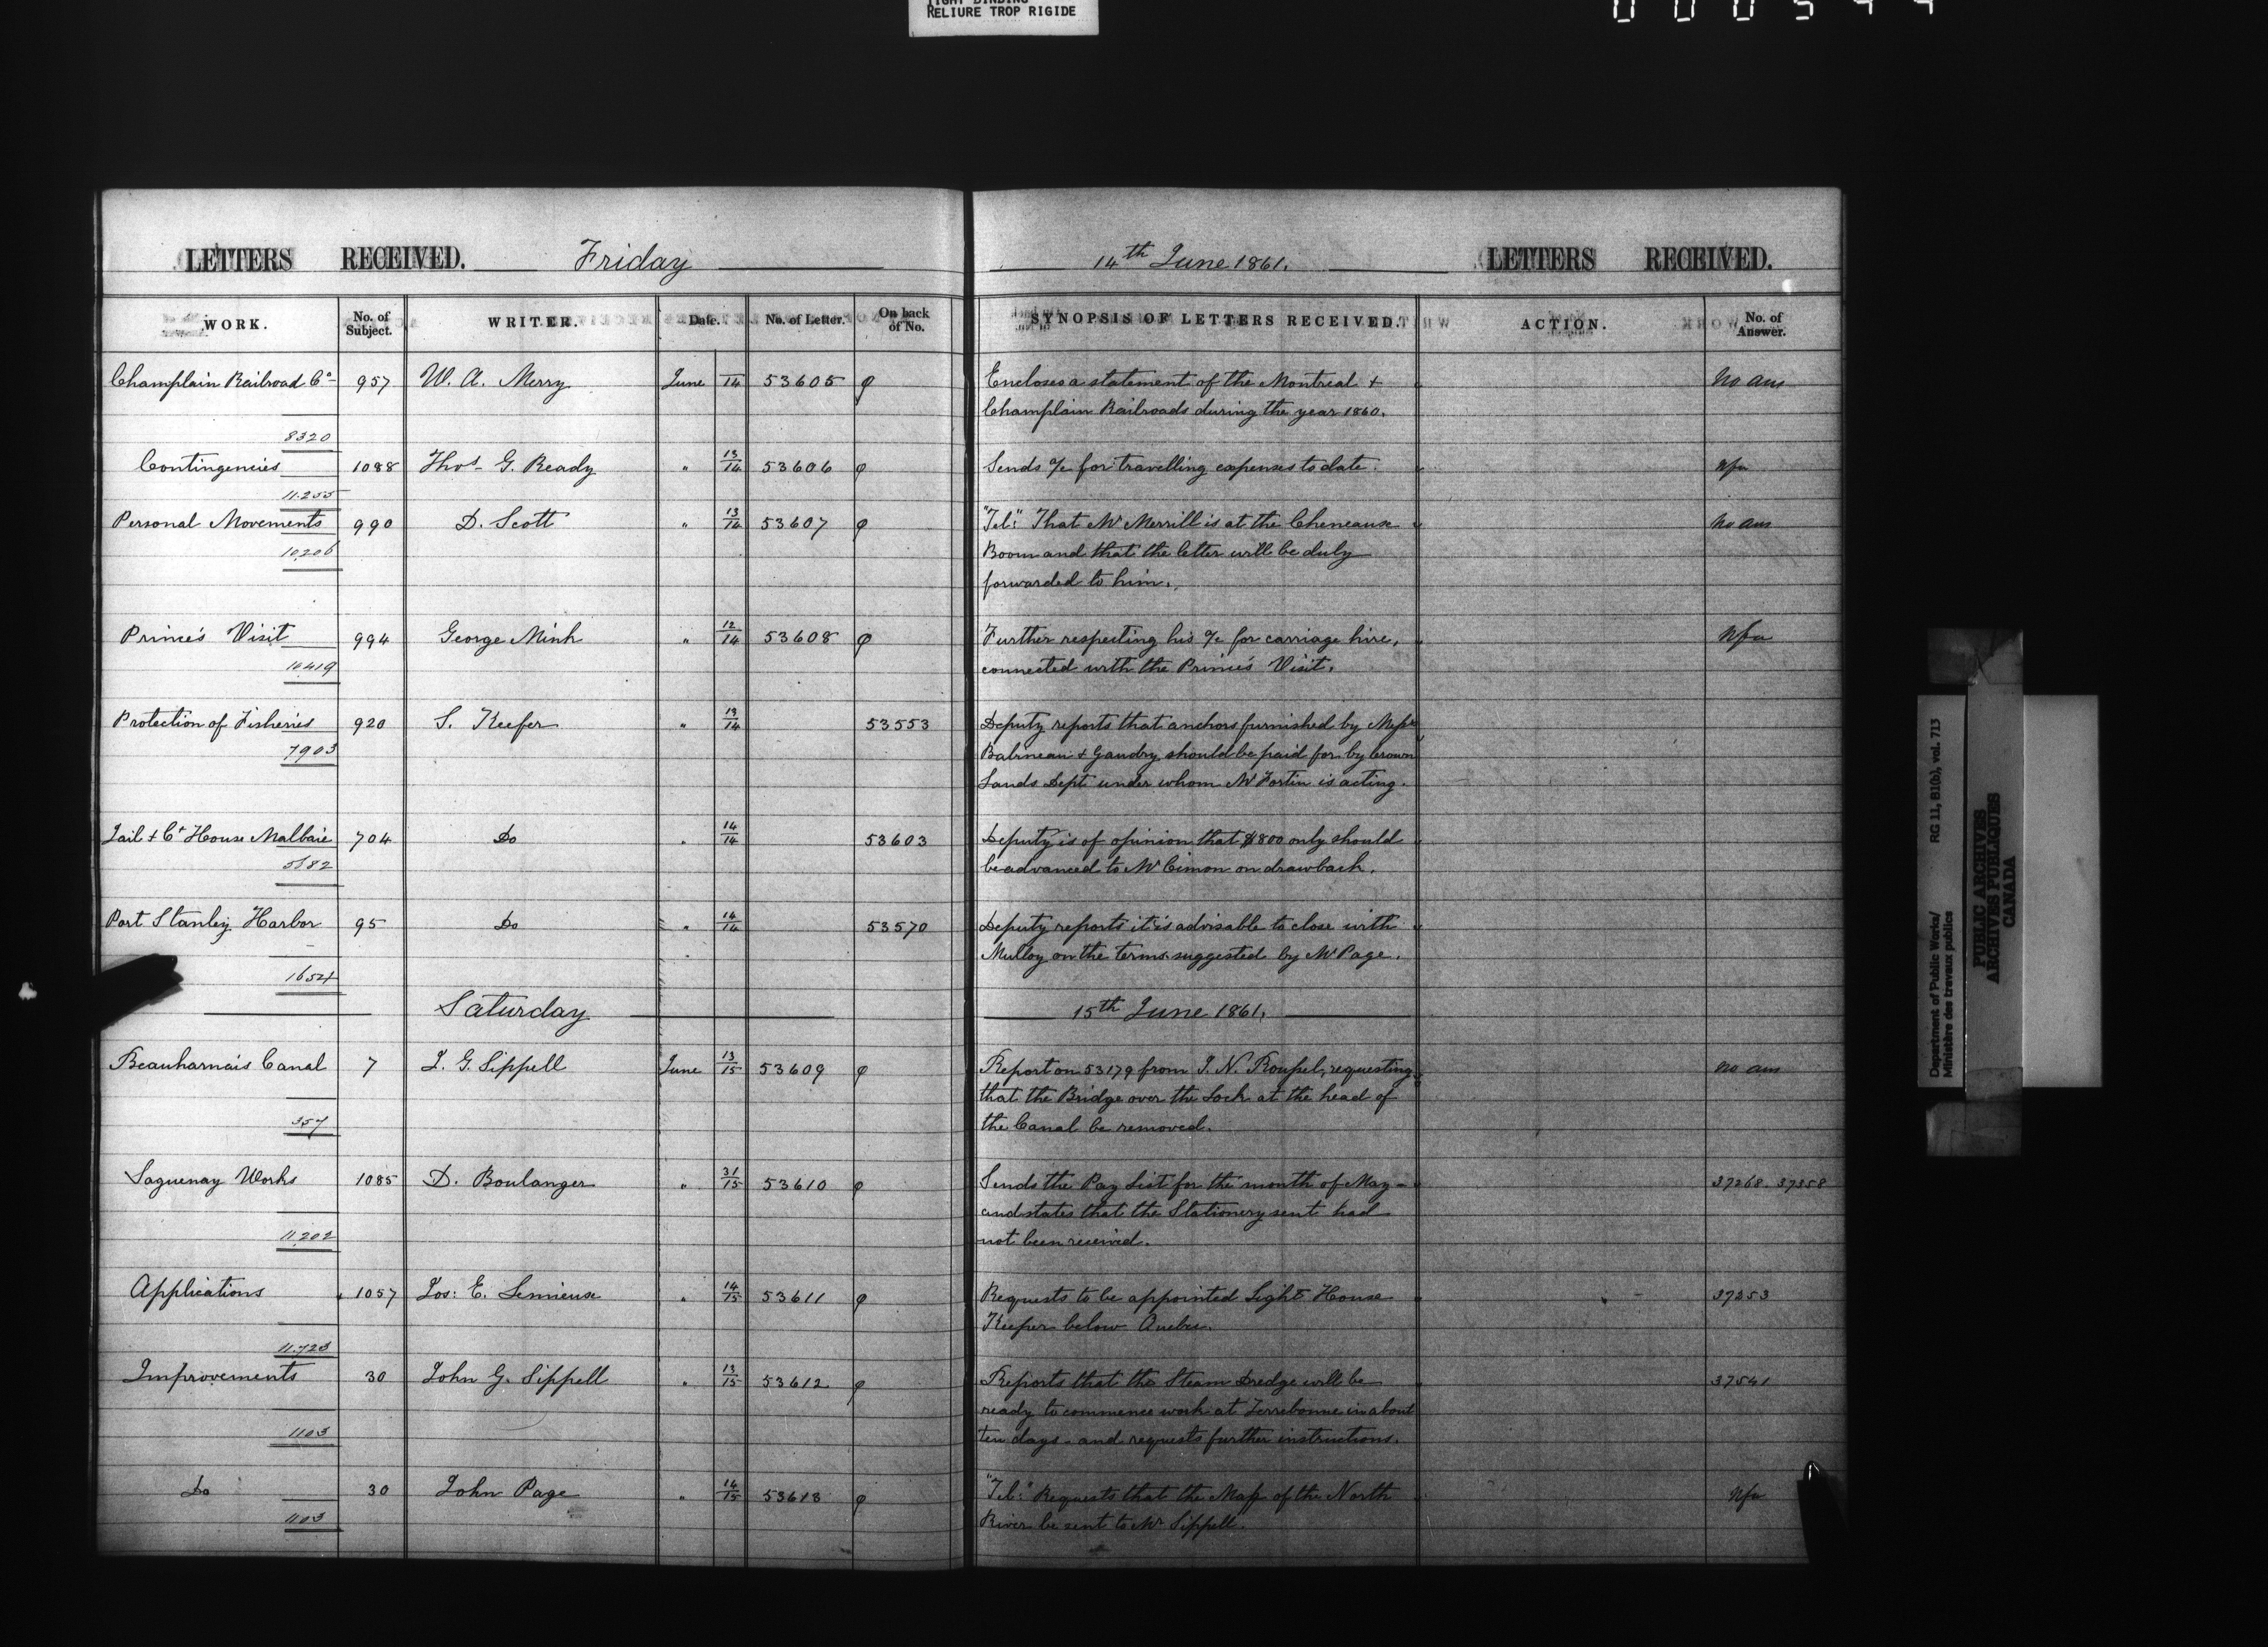 TIGHT BINDING
RELIURE TROP RIGIDE
LETTERS RECEIVED. Friday 14th June 1861. LETTERS RECEIVED.
WORK. No. of Subject. WRITER. Date. No. of Letter. On back of No. SYNOPSIS OF LETTERS RECEIVED. ACTION. No. of Answer.
Champlain Railroad Co. 957 W. A. Merry June 14 53605 Encloses a statement of the Montreal + No ans
Champlain Railroads during the year 1860.
8320
Contingencies 1088 Thos. G. Ready " 13/14 53606 Sends a/c for travelling expenses to date. Nfa
11.255
Personal Movements 990 D. Scott " 13/14 53607 "Tel:" That Mr Merrill is at the Cheneaux No ans
10206 Boom and that the letter will be duly
forwarded to him.
Prince's Visit 994 George Mink " 12/14 53608 Further respecting his a/c for carriage hire, Nfa
10419 connected with the Prince's Visit.
Protection of Fisheries 920 S. Keefer " 13/14 53553 Deputy reports that anchors furnished by Messrs
7903 & Gaudry should be paid for by Crown
Lands Dept under whom Mr Fortin is acting.
Jail & Ct House Malbaie 704 Do " 14/14 53603 Deputy is of opinion that $800 only should
5582 be advanced to Mr Cimon on drawback.
Port Stanley Harbor 95 Do " 14/14 53570 Deputy reports it is advisable to close with
Mulloy on the terms suggested by Mr Page.
1654
Saturday 15th June 1861.
Beauharnais Canal 7 J. G. Sippell June 13/15 53609 Report on 53179 from J. N. requesting no ans
that the Bridge over the Lock at the head of
357 the Canal be removed.
Saguenay Works 1085 D. Boulanger " 31/15 53610 Sends the Pay List for the month of May - 37268. 37358
and states that the Stationery sent had
11,202 not been received.
Applications 1057 Jos: E. Lemieux " 14/15 53611 Requests to be appointed Light House 37253
Keeper below Quebec.
11.723
Improvements 30 John G. Sippell " 13/15 53612 Reports that the Steam Dredge will be 37541
ready to commence work at Terrebonne in about
1103 ten days - and requests further instructions.
Do 30 John Page " 14/15 53613 "Tel:" Requests that the Map of the North Nfa
1103 River be sent to Mr Sippell.
Department of Public Works/ RG 11, B1(b), vol. 713
Ministère des travaux publics
PUBLIC ARCHIVES
ARCHIVES PUBLIQUES
CANADA